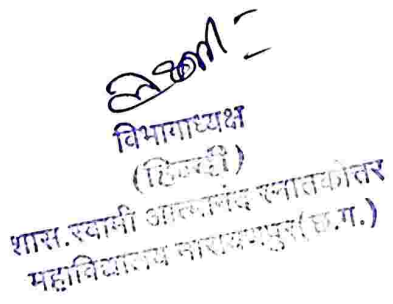 विभागाध्यक्ष
(हिन्दी)
शास.स्वामी आत्मानंद स्नातकोत्तर
महाविद्यालय नारायणपुर(छ.ग.)